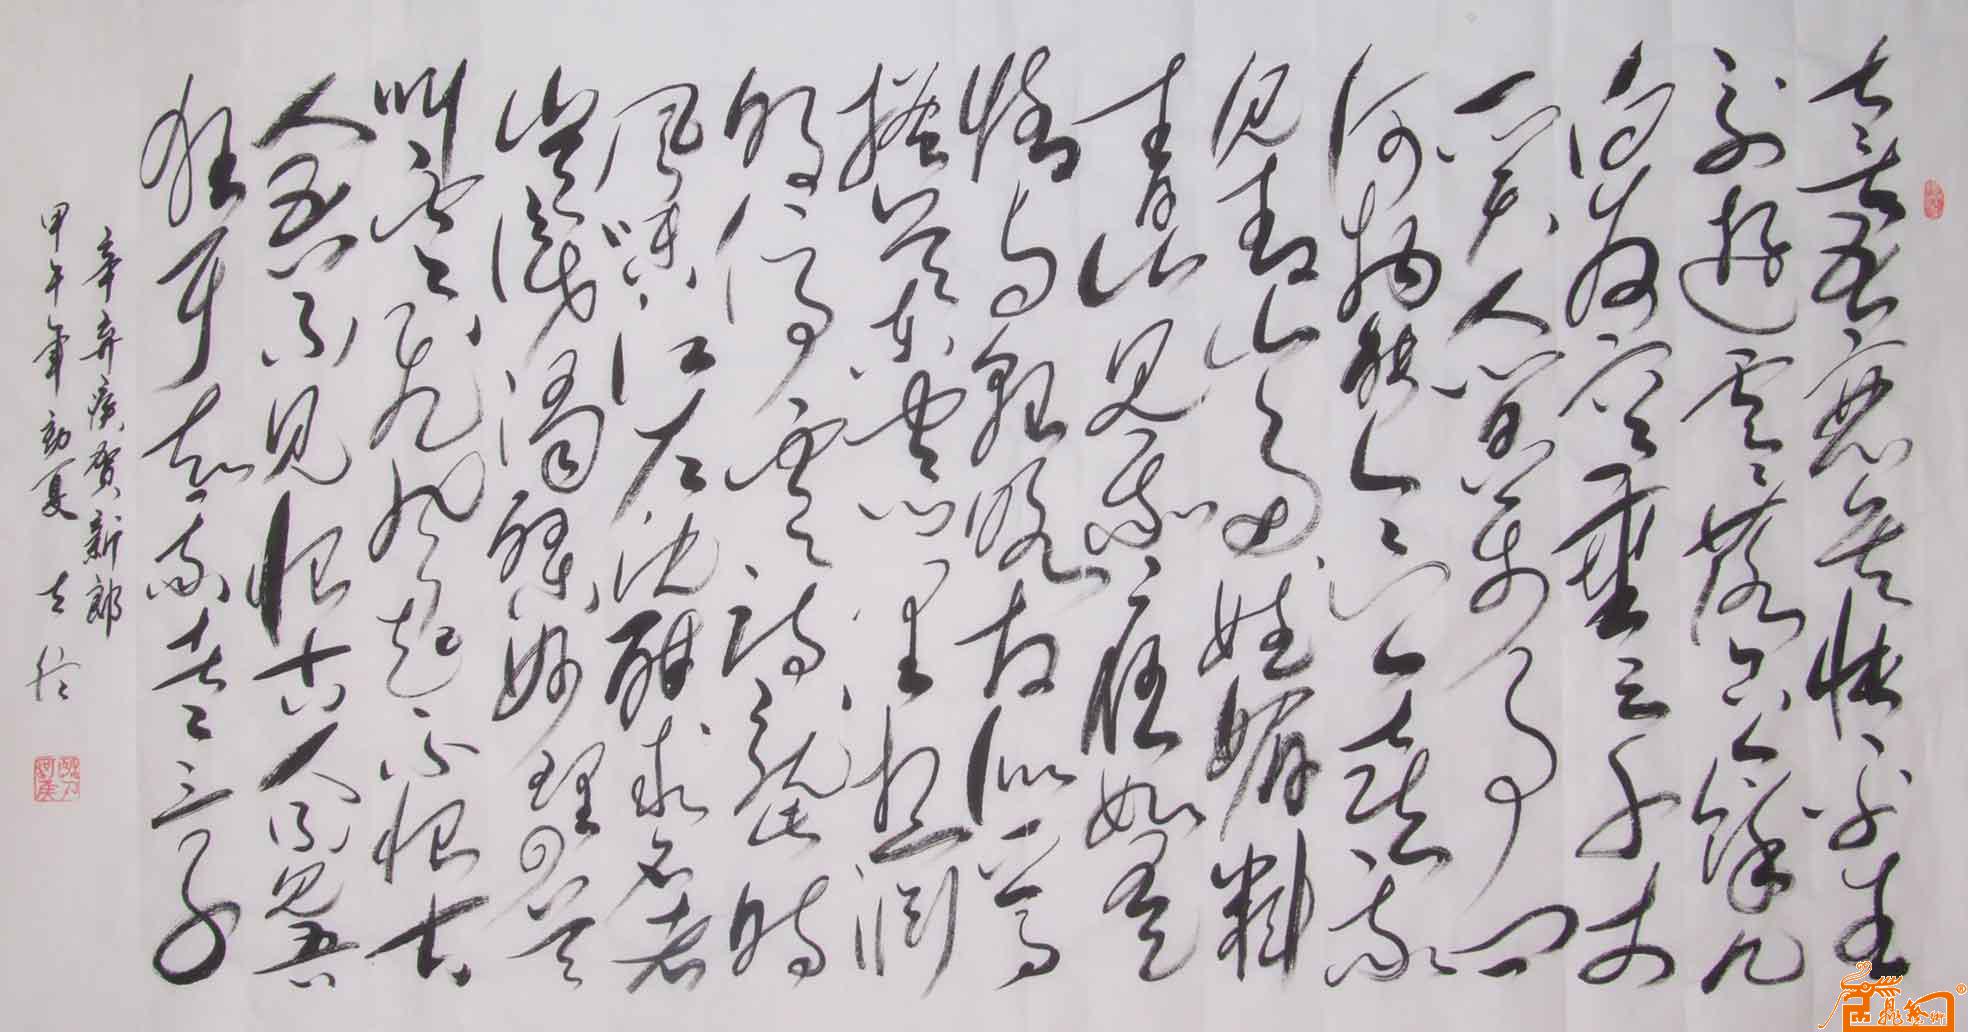 甚矣吾衰矣怅平生
交遊零落只今餘几
白发空垂三千丈
一笑人间万事问
何物能令公喜我
见青山多妩媚料
青山见我应如是
情与貌略相似一尊
搔首东窗里想渊
明停云诗就此时
风味江左沈酣求名者
岂识浊醪妙理回首
叫云飞风起不恨古
人吾不见恨古人不见吾
狂耳知我者二三子
辛弃疾贺新郎
甲午年初夏